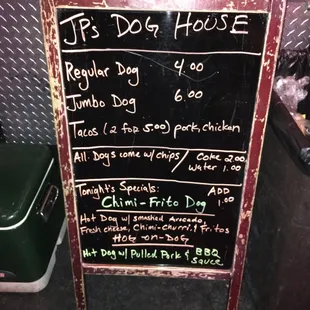 JP's DOG HOUSE
Regular Dog 4.00
Jumbo Dog 6.00
Tacos (2 for 5.00) pork, chicken
All Dogs come w/ chips / Coke 2.00
Water 1.00
Tonight's Specials: ADD
Chimi-Frito Dog 1.00
Hot Dog w/ smashed Avocado,
Fresh cheese, Chimi-Churri & Fritos
HOG-on-DOG
Hot Dog w/ Pulled Pork & BBQ
Sauce